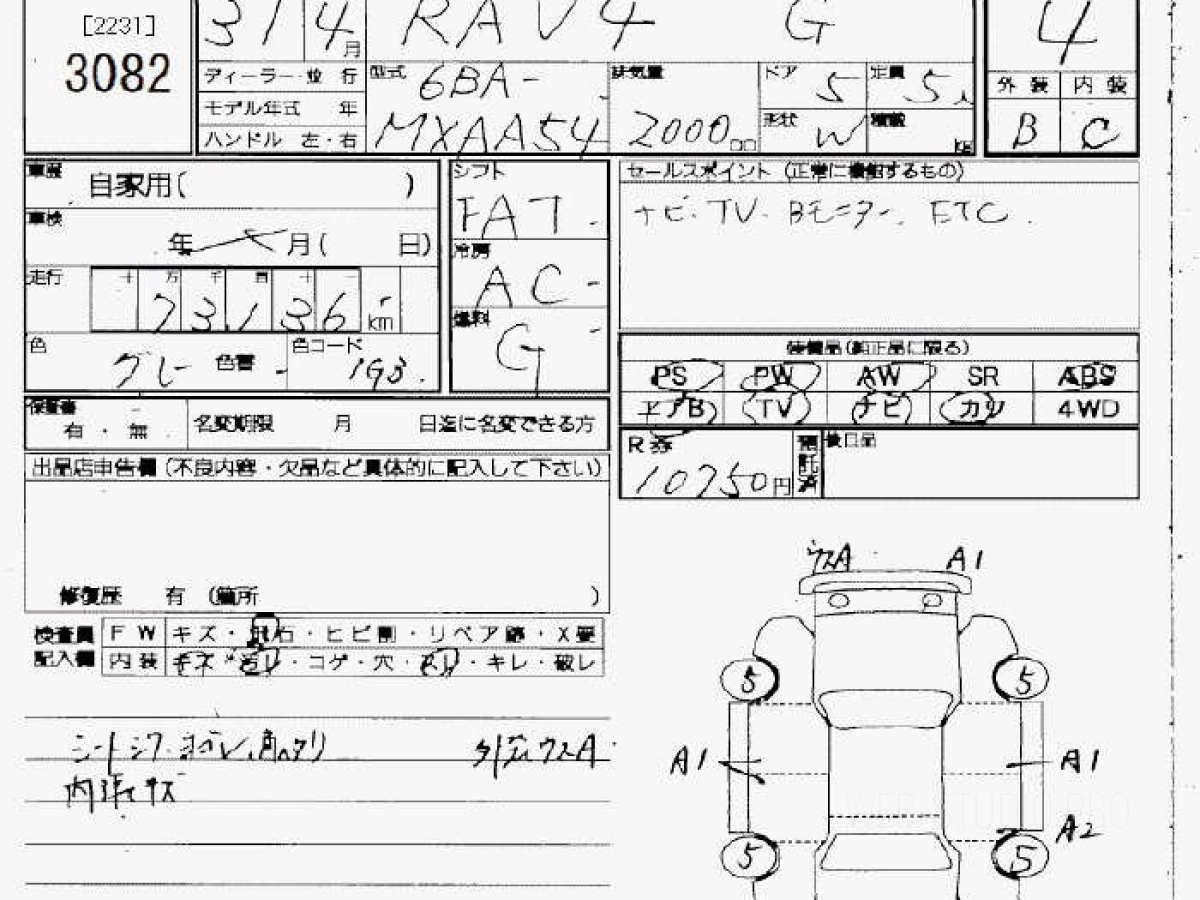 [2231]
3082
31 4月 RAV4 G
4
ディーラー・並行
モデル年式 年
ハンドル 左・右
型式 6BA-
MXAA54
排気量
2000cc
ドア 5
定員 5人
形状 W
積載 kg
外装 内装
B C
車歴
自家用( )
車検
年 月( 日)
走行 十 万 千 百 十 一
73,136 km
色 グレー 色替
色コード 1G3
シフト
FAT
冷房
AC
燃料
G
セールスポイント (正常に機能するもの)
ナビ・TV・Bモニター・ETC
装備品(純正品に限る)
PS PW AW SR ABS
エアB TV ナビ カワ 4WD
保証書
有・無
名変期限 月 日迄に名変できる方
R券
10750円
預託済
後日品
出品店申告欄(不良内容・欠品など具体的に記入して下さい)
修復歴 有 (箇所 )
検査員
記入欄
FW キズ・飛石・ヒビ割・リペア跡・X要
内装 キズ・汚レ・コゲ・穴・スレ・キレ・破レ
シートシワ・ヨゴレ、角ヘタリ
内張キズ
ウスA A1
5 5
A1 A1
A2
5 5
WEB STUDIO PRO